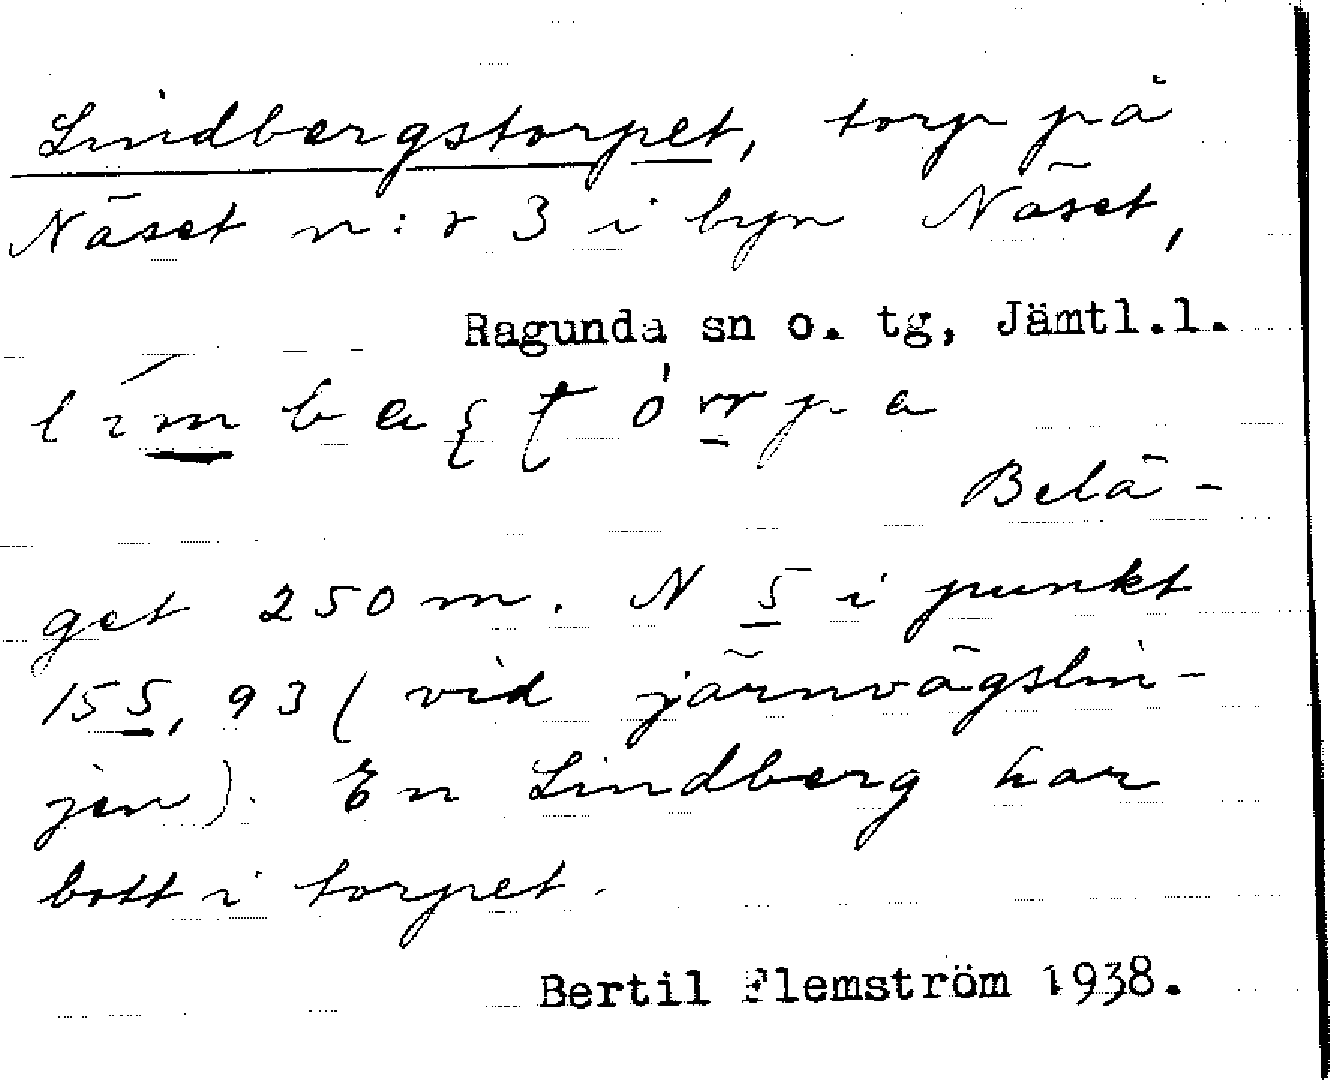 Lindbergstorpet, torp på
Näset n:r 3 i byn Näset,
Ragunda sn o. tg, Jämtl.l.
Belä-
get 250 m. N 5 i punkt
155,93 (vid järnvägslin-
jen). En Lindberg har
bott i torpet.
Bertil Flemström 1938.